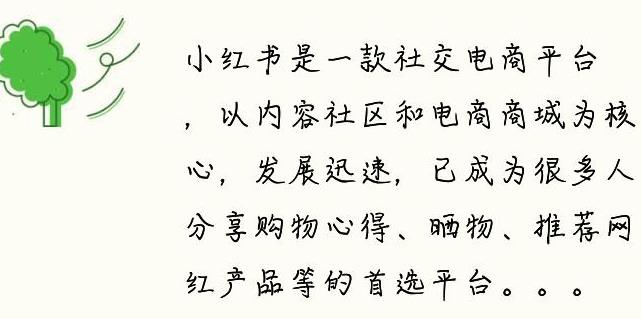 小红书是一款社交电商平台
，以内容社区和电商商城为核
心，发展迅速，已成为很多人
分享购物心得、晒物、推荐网
红产品等的首选平台。。。